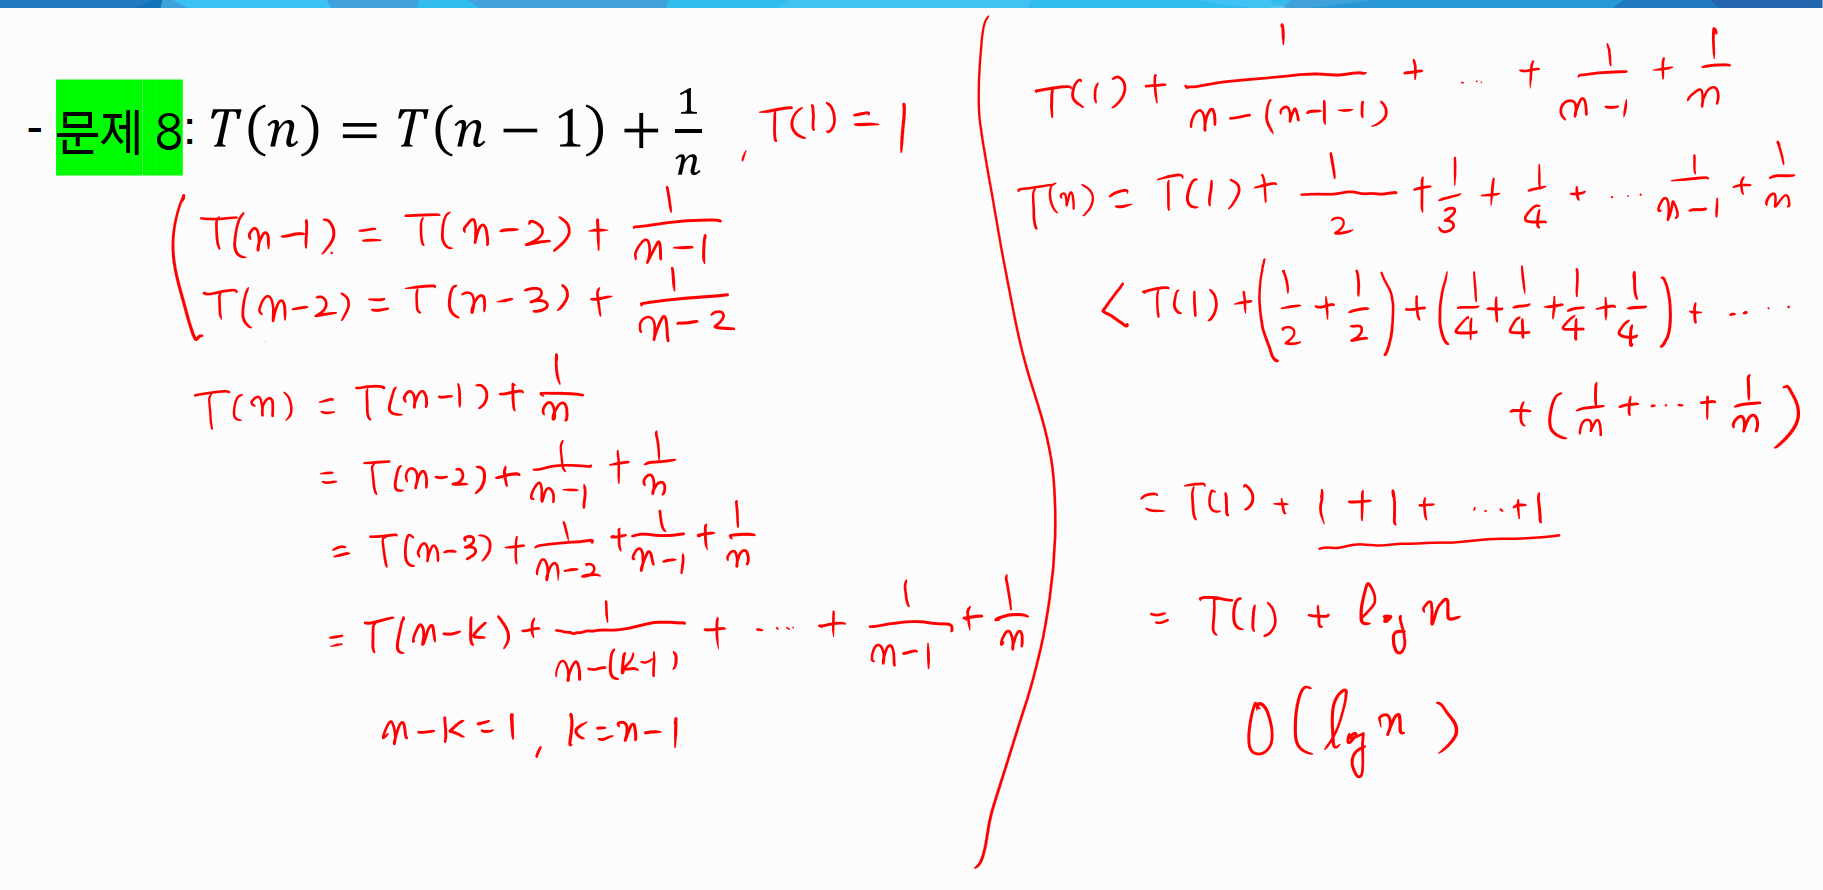 - 문제 8: T(n) = T(n − 1) + 1/n , T(1) = 1
T(n-1) = T(n-2) + 1/(n-1)
T(n-2) = T(n-3) + 1/(n-2)
T(n) = T(n-1) + 1/n
= T(n-2) + 1/(n-1) + 1/n
= T(n-3) + 1/(n-2) + 1/(n-1) + 1/n
= T(n-k) + 1/(n-(k-1)) + ... + 1/(n-1) + 1/n
n-k=1, k=n-1
T(1) + 1/(n-(n-1-1)) + ... + 1/(n-1) + 1/n
T(n) = T(1) + 1/2 + 1/3 + 1/4 + ... 1/(n-1) + 1/n
< T(1) + (1/2 + 1/2) + (1/4 + 1/4 + 1/4 + 1/4) + ....
+ (1/n + ... + 1/n)
= T(1) + 1 + 1 + ... + 1
= T(1) + log n
O(log n)